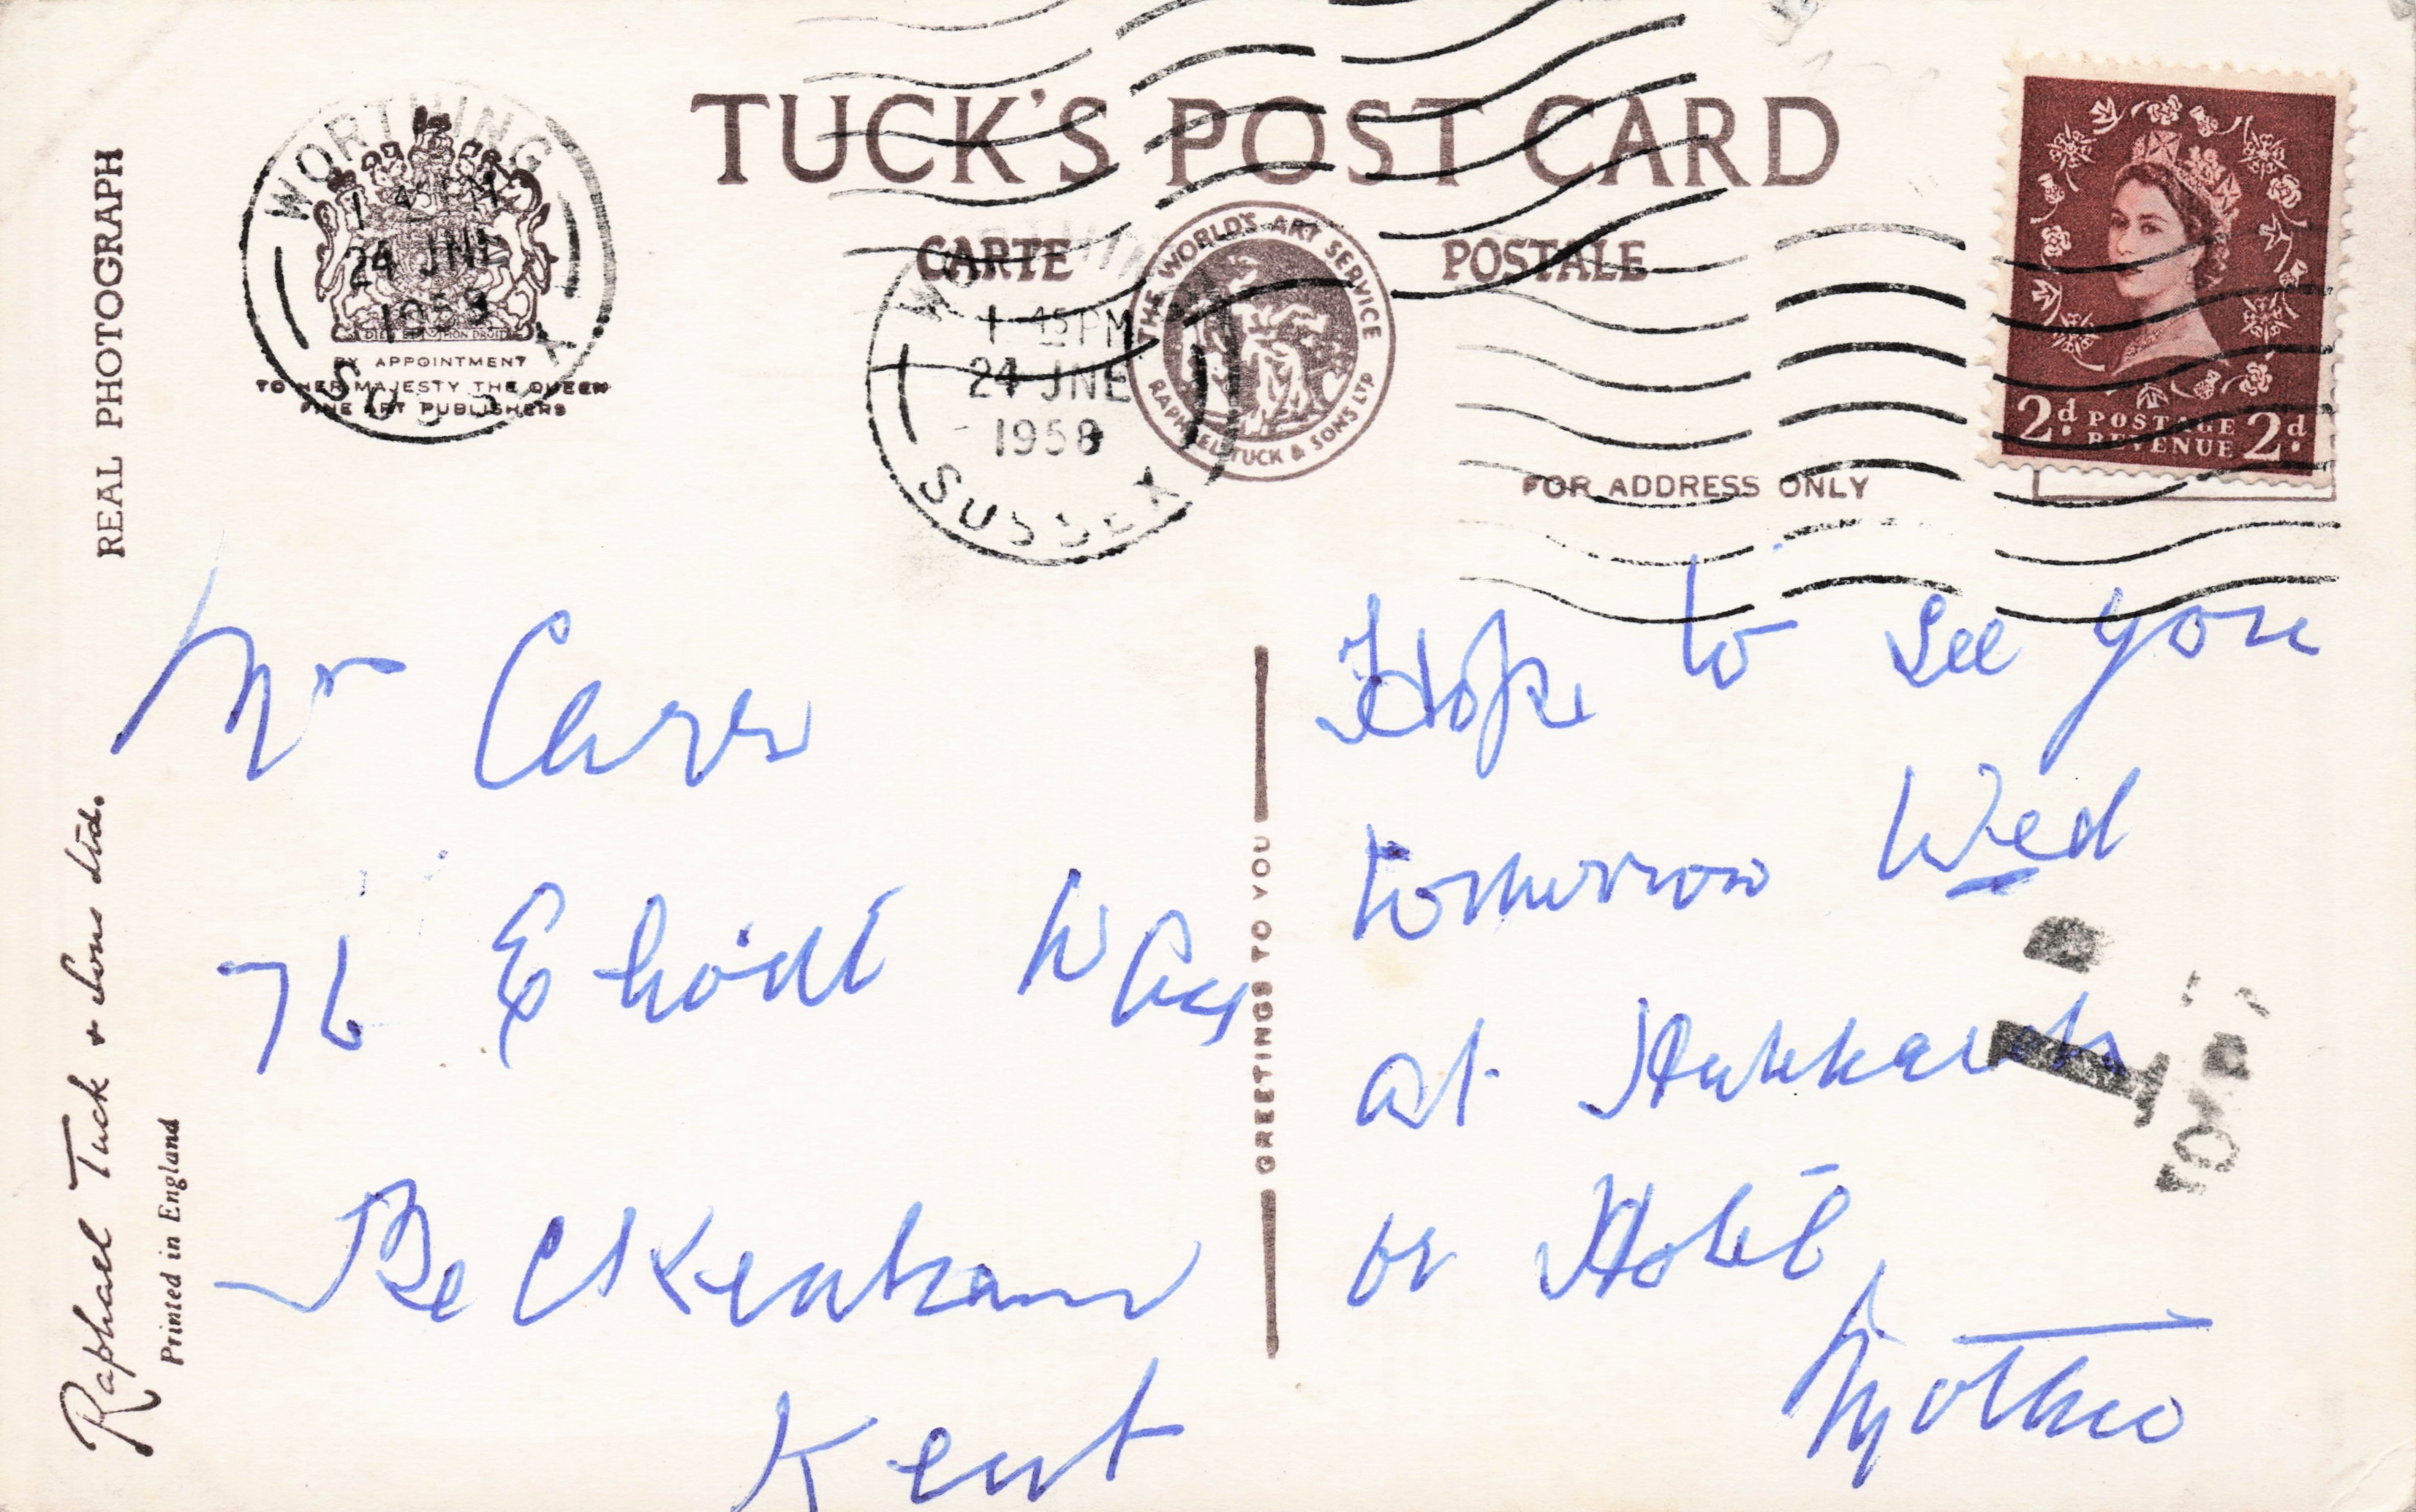 TUCK'S POST CARD
CARTE POSTALE
THE WORLD'S ART SERVICE
RAPHAEL TUCK & SONS LTD
FOR ADDRESS ONLY
WORTHING
1 45 PM
24 JNE
1958
SUSSEX
DIEU ET MON DROIT
BY APPOINTMENT
TO HER MAJESTY THE QUEEN
FINE ART PUBLISHERS
WORTHING
1 45 PM
24 JNE
1958
SUSSEX
2d POSTAGE 2d
REVENUE
REAL PHOTOGRAPH
Raphael Tuck & Sons Ltd.
Printed in England
GREETINGS TO YOU
Carr
76 Way
Beckenham
Kent
Hope to see you
tomorrow Wed
at
or Hotel
Mother